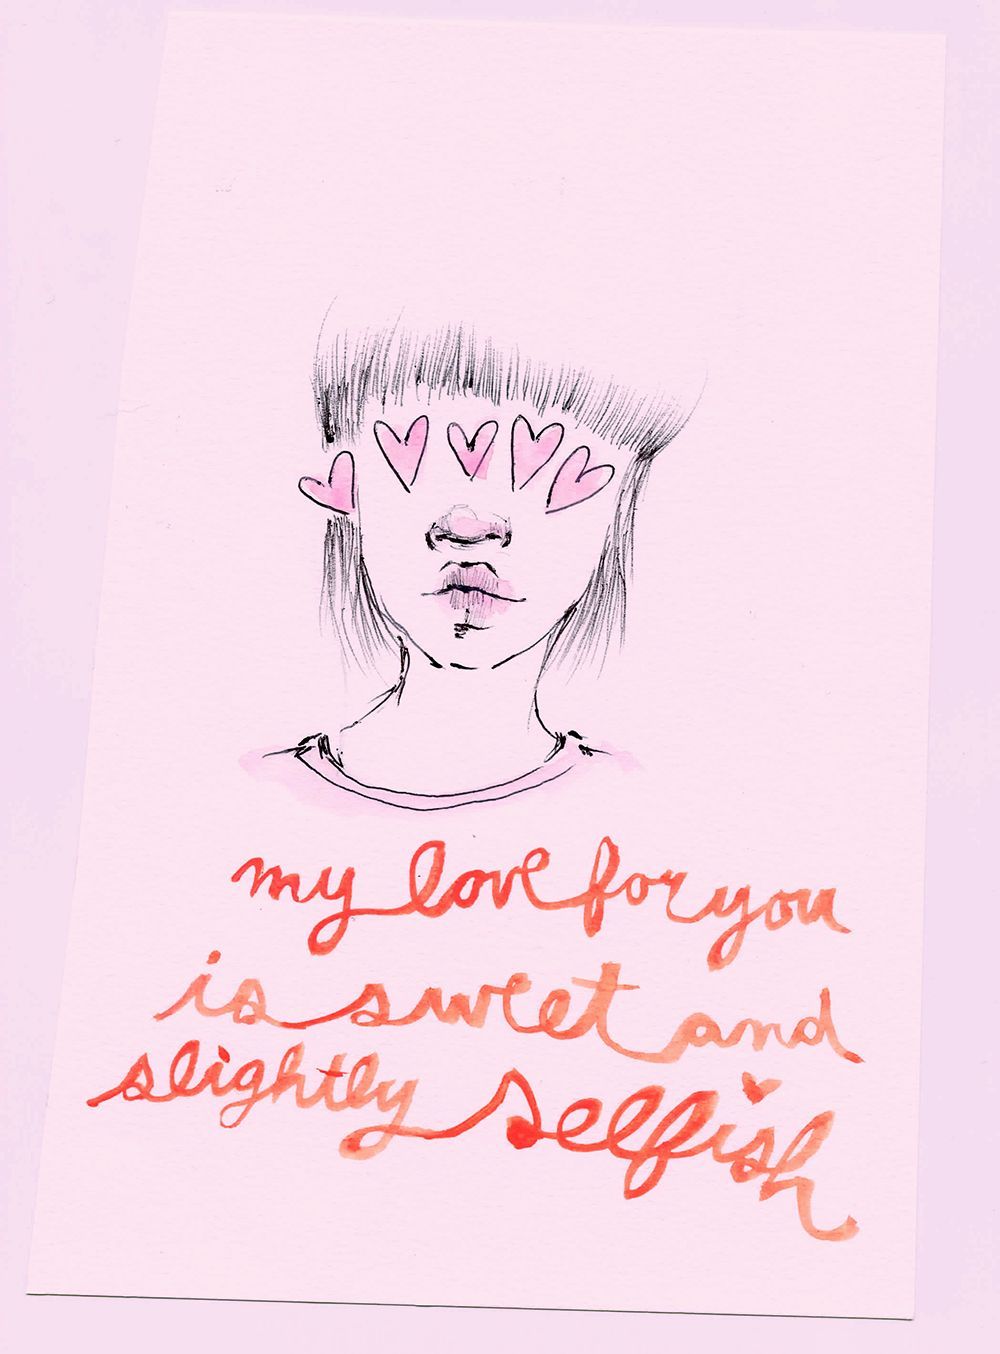 my love for you
is sweet and
slightly selfish